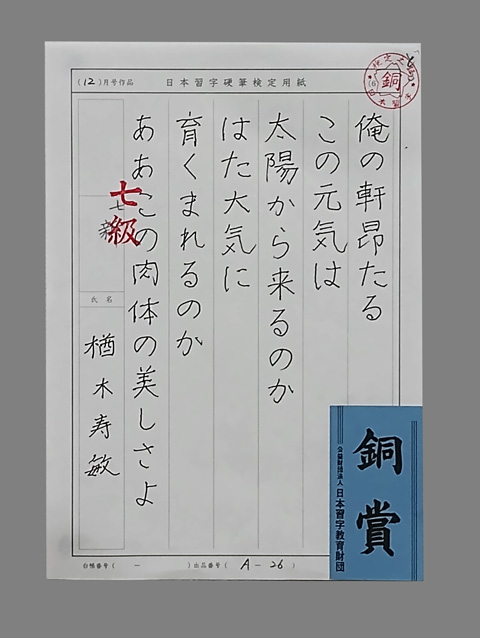 (12)月号作品 日本習字硬筆検定用紙
銅
日本習字
俺の軒昂たる
この元気は
太陽から来るのか
はた大気に
育くまれるのか
ああこの肉体の美しさよ
七級
氏名
楢木寿敏
銅賞
公益財団法人 日本習字教育財団
台帳番号( - ) 出品番号( A-26 )